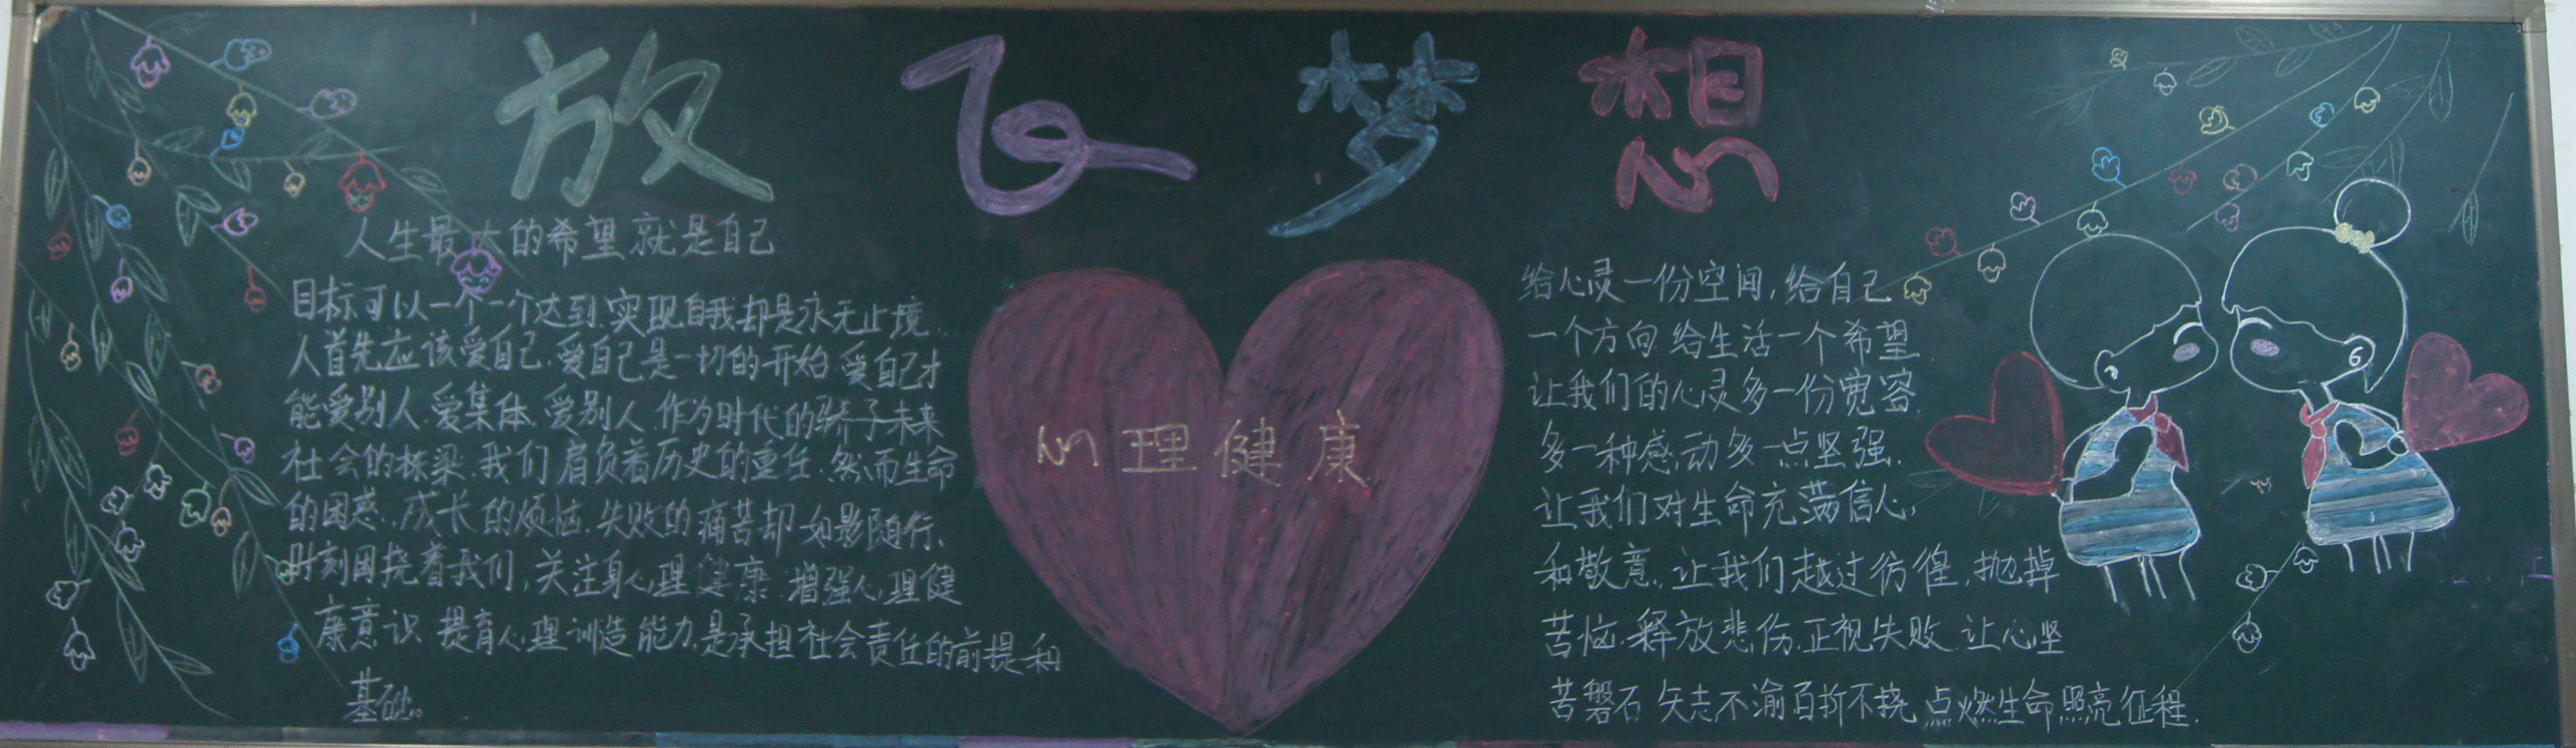 放飞梦想
人生最大的希望就是自己
目标可以一个一个达到.实现自我却是永无止境.
人首先应该爱自己.爱自己是一切的开始.爱自己才
能爱别人.爱集体.爱别人.作为时代的骄子未来
社会的栋梁.我们肩负着历史的重任.然而生命
的困惑.成长的烦恼.失败的痛苦却如影随行、
时刻困挠着我们,关注身心理健康.增强心理健
康意识 提育心理训造能力.是承担社会责任的前提和
基础。
心理健康
给心灵一份空间,给自己
一个方向 给生活一个希望
让我们的心灵多一份宽容.
多一种感动多一点坚强.
让我们对生命充满信心,
和敬意.让我们越过彷徨.抛掉
苦恼.释放悲伤.正视失败.让心坚
苦磐石 矢志不渝百折不挠 点燃生命照亮征程.